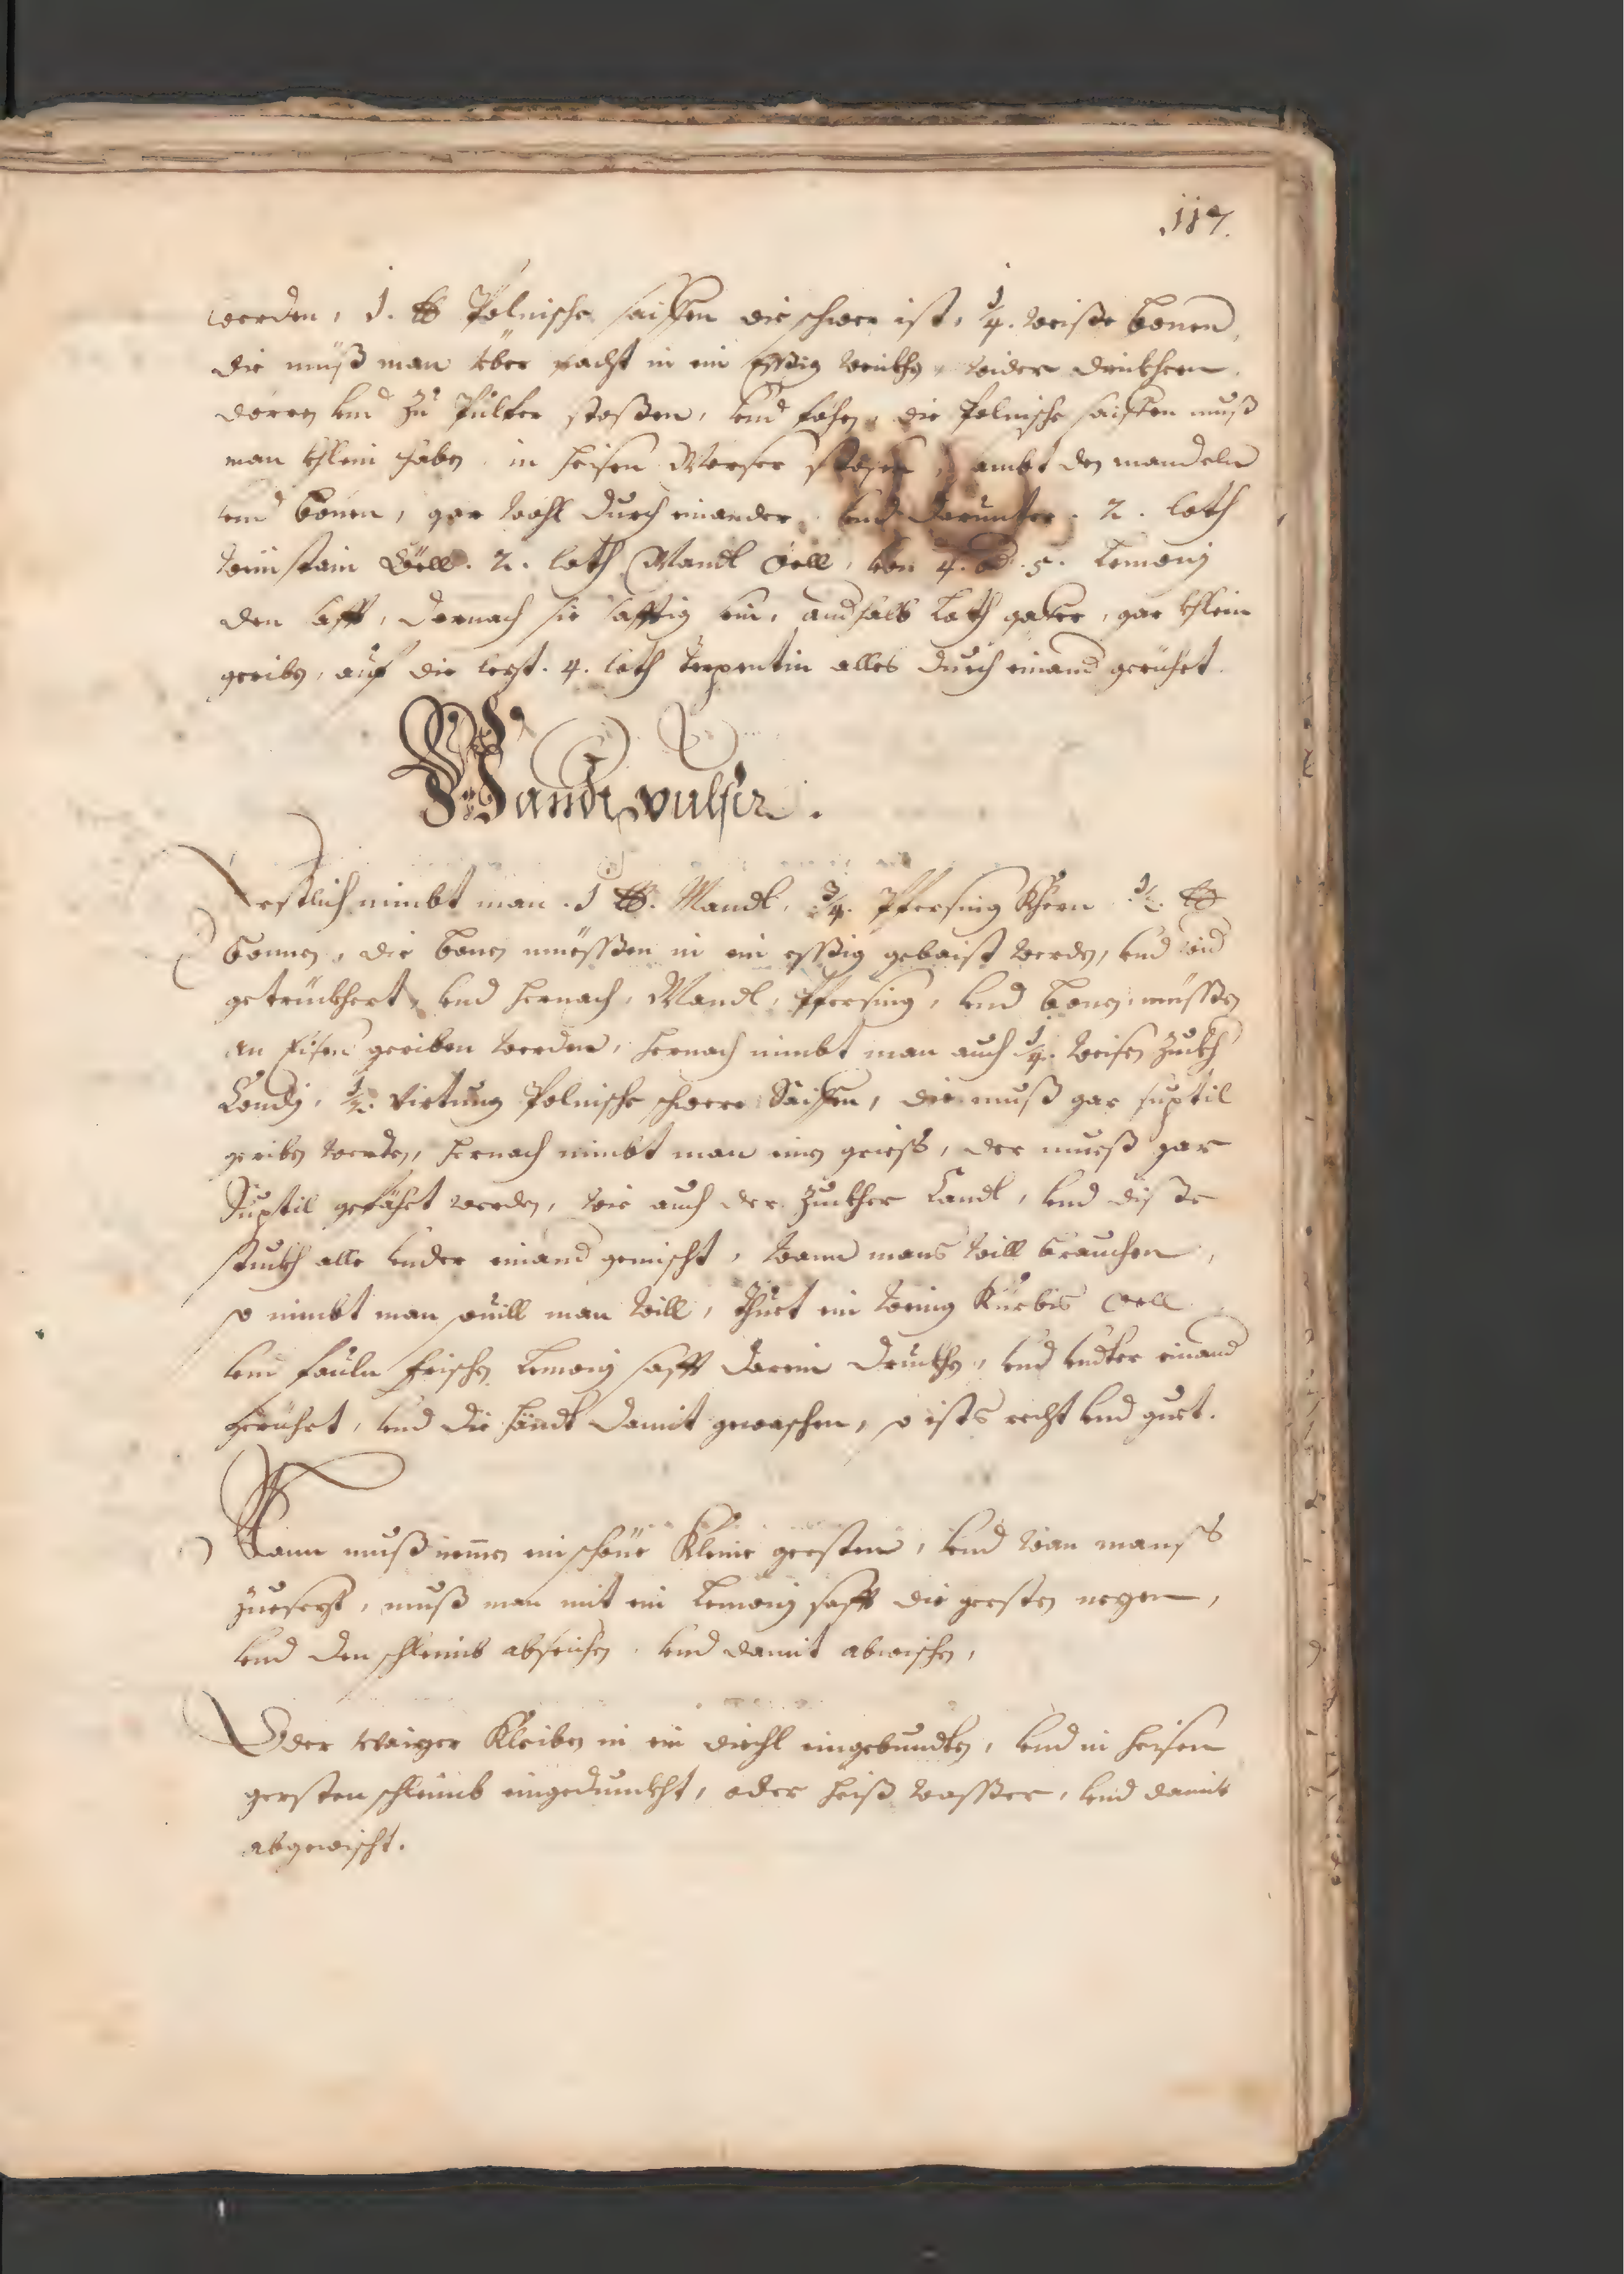 117.
werden, 1. ℔ Polnische saiffen die schwer ist, 1/4. weiße bonen,
die muß man über nacht in ein Essig weikhen, wider drikhern
dören und Zu Pulfer stoßen, und fähen, die Polnische saiffen muß
man khlein schaben in heisen Morser stosen, sambt den mandeln
und bonen, gar wohl durch einander, und darunter. 2. loth
Weinstain Oell. 2. loth Mandl Oell, von 4. od. 5. Lemonj
den safft, darnach sie safftig sein, andhalb Loth gaffer, gar khlein
geriben, auf die lezt. 4. loth Terpentin alles durch einand gerührt.
Handt pulfer.
Erstlich nimbt man. 1 ℔. Mandl, 3/4. Pfersing Khern 1/2. ℔
bonnen, die bonen müessßen in ein essßig gebaist werden, und wid
getrückhert, und hernach, Mandl, Pfersing, und bonen, müssßen
an Eisen geriben werden, hernach nimbt man auch 1/4. weisen Zuckh
Candj, 1/2. Virtung Polnische schwere Saiffen, die muß gar suptil
geriben werden, hernach nimbt man ein griess, der mueß gar
Suptil gefäht werden, wie auch der Zuckher Candl, und diße
stuckh alle under einand gemischt, wann mans will brauchen,
so nimbt man souill man will, thuet ein wenig Kürbis Oell
und fauln frischen Lemonj safft darein druckhen, und undter einand
gerührt, und die händt damit gewaschen, so ists recht und guet.
Dann muß nemen ein schöne Kleine gersten, und wan manß
zuesezt, muß man mit ein Lemonj safft die gersten nezen,
und den schleimb abseihen, und damit abwischen,
Oder waizen Kleiben in ein diechl eingebundten, und in heisen
gersten schleimb eingedunckht, oder heiß wasßer, und damit
abgewischt.